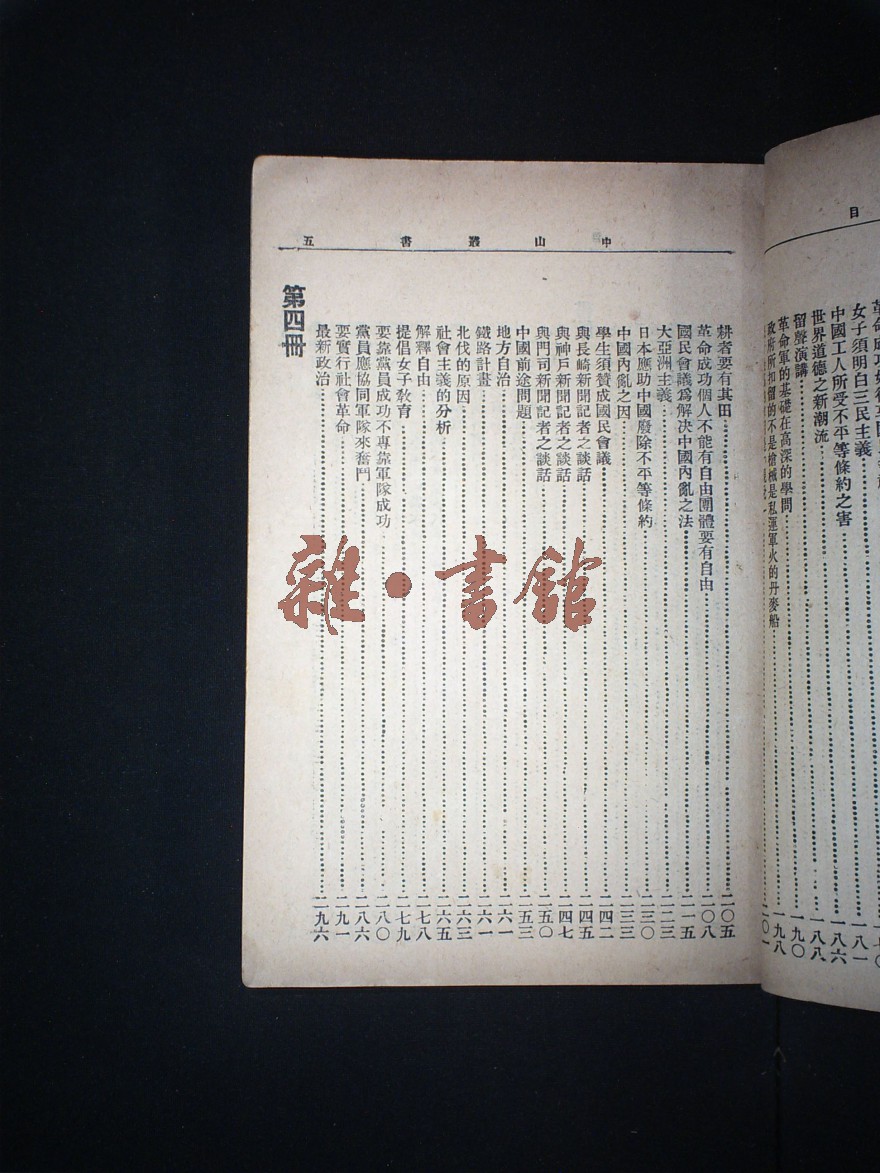 目
世界道德之新潮流……一八八
女子須明白三民主義……一八一
中國工人所受不平等條約之害……一八六
留聲演講……一九〇
革命軍的基礎在高深的學問……一九八
政府所扣留的不是槍械是私運軍火的丹麥船……二〇一
中山叢書 五
耕者要有其田……二〇五
革命成功個人不能有自由團體要有自由……二〇八
國民會議為解決中國內亂之法……二一五
大亞洲主義……二二三
日本應助中國廢除不平等條約……二三〇
中國內亂之因……二三三
學生須贊成國民會議……二四二
與長崎新聞記者之談話……二四五
與神戶新聞記者之談話……二四七
與門司新聞記者之談話……二五〇
中國前途問題……二五三
地方自治……二六一
鐵路計畫……二六一
北伐的原因……二六三
社會主義的分析……二六五
解釋自由……二七八
提倡女子教育……二七九
要靠黨員成功不專靠軍隊成功……二八〇
黨員應協同軍隊來奮鬥……二八六
要實行社會革命……二九一
最新政治……二九六
第四冊
雜·書館